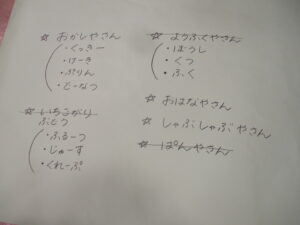 ☆ おかしやさん
・くっきー
・けーき
・ぷりん
・どーなつ
☆ いちごがり
ぶどう
・ふるーつ
・じゅーす
・くれーぷ
☆ ようふくやさん
・ぼうし
・くつ
・ふく
☆ おはなやさん
☆ しゃぶしゃぶやさん
☆ ぱんやさん